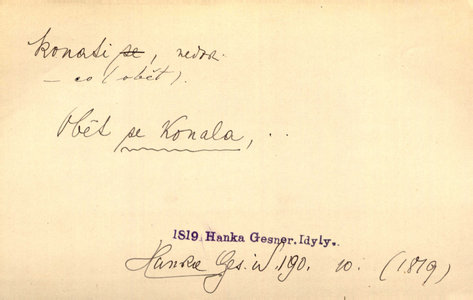 konati se, nedok.
— co (oběť).
Oběť se konala, ..
1819 Hanka Gesner. Idyly.
Hanka Ges. id. 190. 10. (1819)